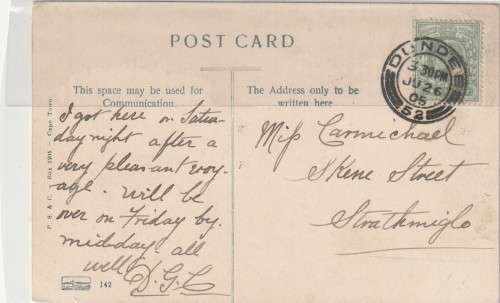 POST CARD
This space may be used for
Communication
The Address only to be
written here
DUNDEE
3.30PM
JU 26
05
52
I got here on Satur-
day night after a
very pleasant voy-
age. Will be
over on Friday by
midday. all
well.
D.G.C
Miss Carmichael
Skene Street
Strathmiglo
P. S. & C. Box 1001 - Cape Town
142